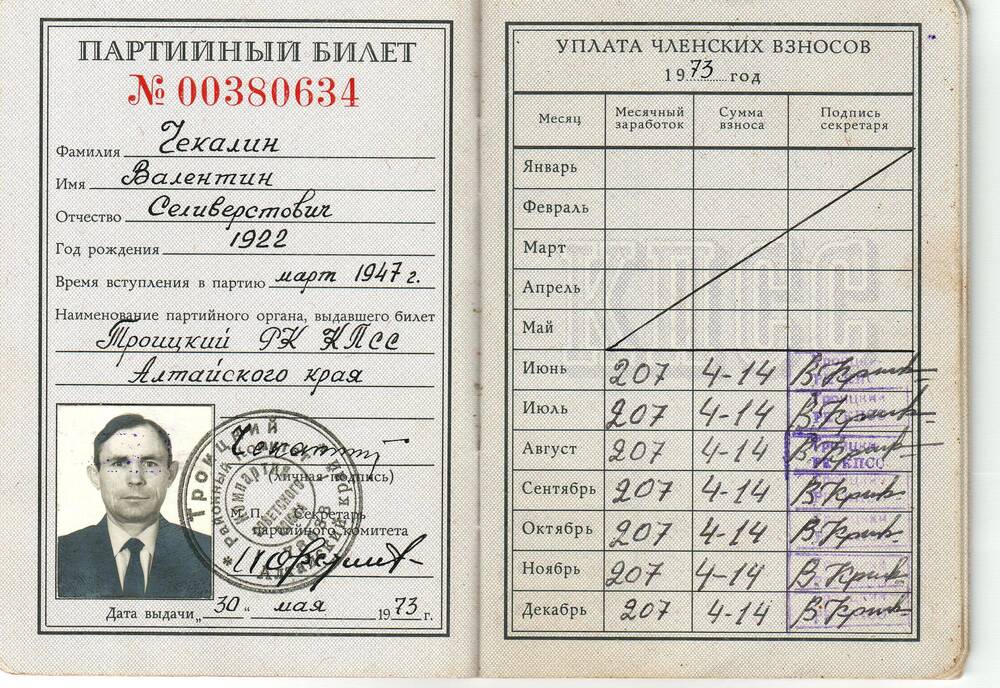 ПАРТИЙНЫЙ БИЛЕТ
№ 00380634
Фамилия Чекалин
Имя Валентин
Отчество Селиверстович
Год рождения 1922
Время вступления в партию март 1947 г.
Наименование партийного органа, выдавшего билет
Троицкий РК КПСС
Алтайского края
(личная подпись)
М. П. Секретарь
партийного комитета
Дата выдачи „30“ мая 1973 г.
УПЛАТА ЧЛЕНСКИХ ВЗНОСОВ
1973 год
Месяц Месячный заработок Сумма взноса Подпись секретаря
Январь
Февраль
Март
Апрель
Май
Июнь 207 4-14
Июль 207 4-14
Август 207 4-14
Сентябрь 207 4-14
Октябрь 207 4-14
Ноябрь 207 4-14
Декабрь 207 4-14
КПСС
ТРОИЦКИЙ